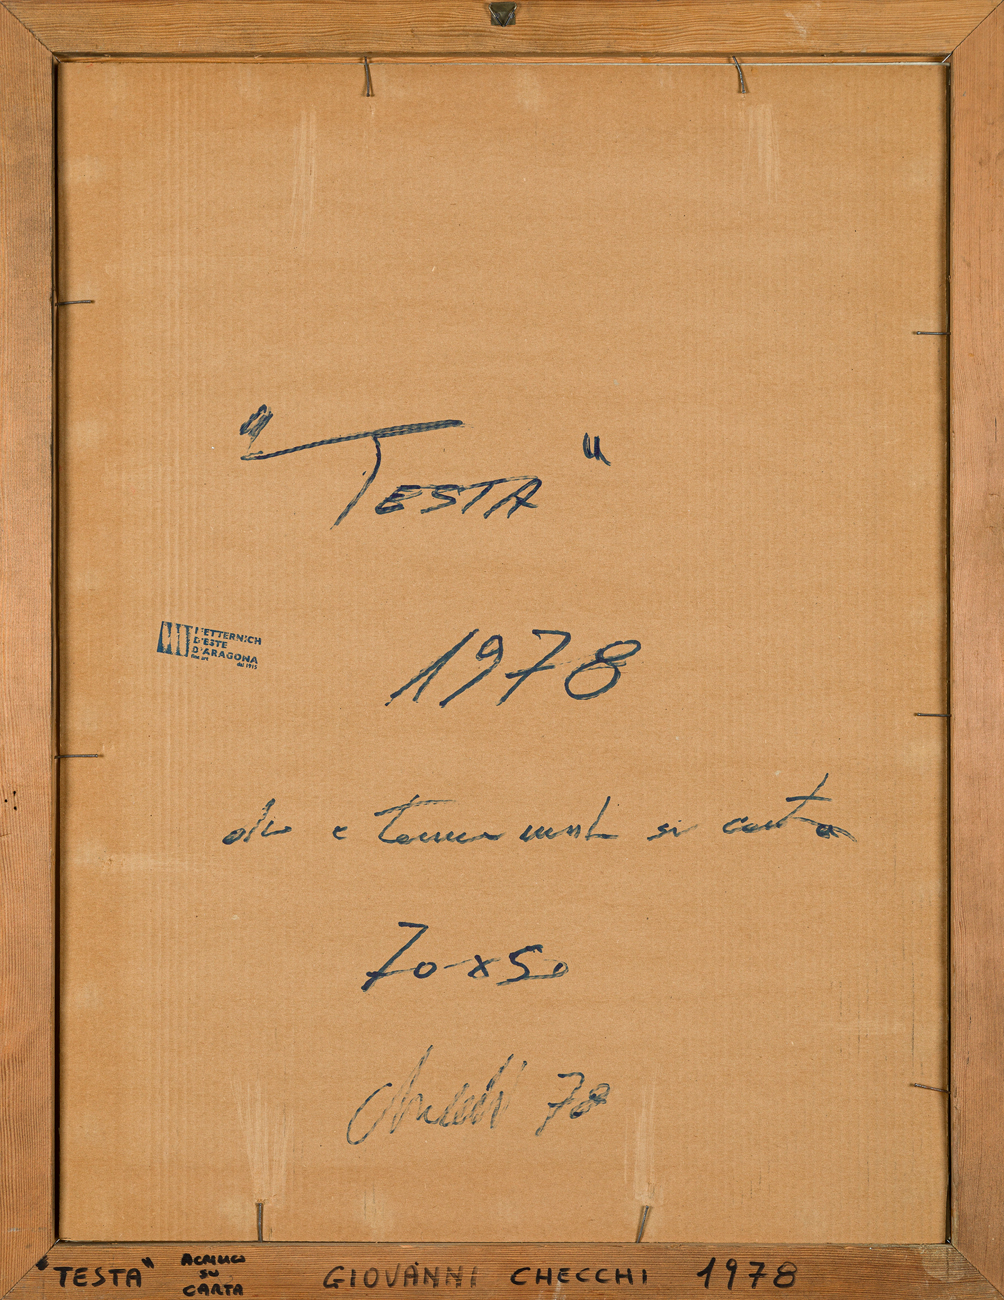 "TESTA"
METTERNICH
D'ESTE
D'ARAGONA
dal 1915
1978
olio e su carta
70x50
Checchi 78
"TESTA" ACRILICO SU CARTA GIOVANNI CHECCHI 1978